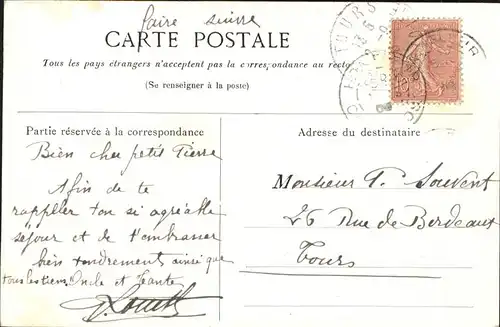 faire suivre
CARTE POSTALE
Tous les pays étrangers n'acceptent pas la correspondance au recto
(Se renseigner à la poste)
Partie réservée à la correspondance
Adresse du destinataire
TOURS
Bien cher petit Pierre
Afin de te
rappller ton si agréable
séjour et de t'embrasser
bien tendrement ainsi que
tous les tiens Oncle et Tante
Monsieur P. Souvent
26 Rue de Bordeaux
Tours